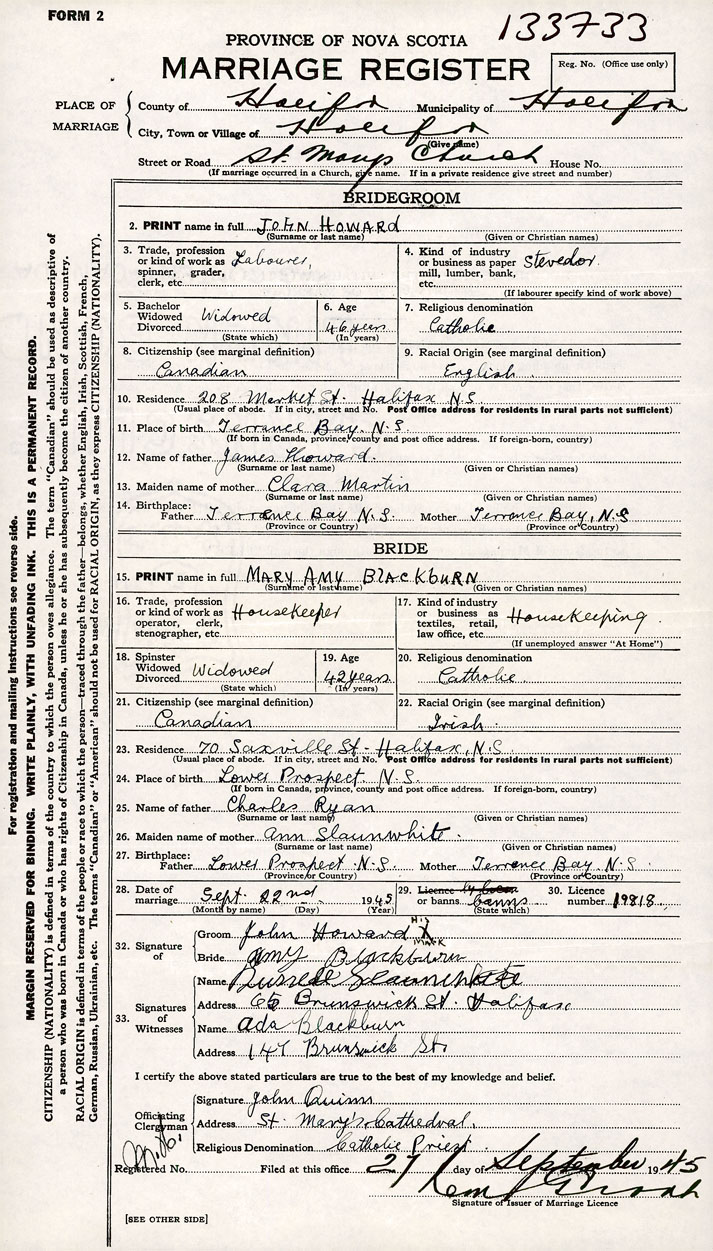 FORM 2
133733
PROVINCE OF NOVA SCOTIA
MARRIAGE REGISTER
Reg. No. (Office use only)
PLACE OF MARRIAGE
County of Halifax Municipality of Halifax
City, Town or Village of Halifax
(Give name)
Street or Road St. Marys Church House No.
(If marriage occurred in a Church, give name. If in a private residence give street and number)
BRIDEGROOM
2. PRINT name in full JOHN HOWARD
(Surname or last name) (Given or Christian names)
3. Trade, profession or kind of work as spinner, grader, clerk, etc. Labourer,
4. Kind of industry or business as paper mill, lumber, bank, etc. Stevedor.
(If labourer specify kind of work above)
5. Bachelor Widowed Divorced Widowed
(State which)
6. Age 46 years
(In years)
7. Religious denomination
Catholic
8. Citizenship (see marginal definition)
Canadian
9. Racial Origin (see marginal definition)
English.
10. Residence 208 Market St. Halifax N.S.
(Usual place of abode. If in city, street and No. Post Office address for residents in rural parts not sufficient)
11. Place of birth Terrance Bay. N.S.
(If born in Canada, province, county and post office address. If foreign-born, country)
12. Name of father James Howard.
(Surname or last name) (Given or Christian names)
13. Maiden name of mother Clara Martin
(Surname or last name) (Given or Christian names)
14. Birthplace: Father Terrence Bay N.S. Mother Terrence Bay, N.S
(Province or Country) (Province or Country)
BRIDE
15. PRINT name in full MARY AMY BLACKBURN
(Surname or last name) (Given or Christian names)
16. Trade, profession or kind of work as operator, clerk, stenographer, etc. Housekeeper
17. Kind of industry or business as textiles, retail, law office, etc. Housekeeping.
(If unemployed answer "At Home")
18. Spinster Widowed Divorced Widowed
(State which)
19. Age 42 years
(In years)
20. Religious denomination
Catholic.
21. Citizenship (see marginal definition)
Canadian
22. Racial Origin (see marginal definition)
Irish.
23. Residence 70 Saxville St - Halifax, N.S.
(Usual place of abode. If in city, street and No. Post Office address for residents in rural parts not sufficient)
24. Place of birth Lower Prospect N.S.
(If born in Canada, province, county and post office address. If foreign-born, country)
25. Name of father Charles Ryan
(Surname or last name) (Given or Christian names)
26. Maiden name of mother Ann Slaunwhite.
(Surname or last name) (Given or Christian names)
27. Birthplace: Father Lower Prospect N.S. Mother Terrence Bay. N.S.
(Province or Country) (Province or Country)
28. Date of marriage Sept. 22nd 1945
(Month by name) (Day) (Year)
29. Licence or banns banns
(State which)
30. Licence number 19818.
32. Signature of
Groom John Howard X His Mark
Bride Amy Blackburn
33. Signatures of Witnesses
Name Russell Slaunwhite
Address 65 Brunswick St. Halifax
Name Ada Blackburn
Address 147 Brunswick St.
I certify the above stated particulars are true to the best of my knowledge and belief.
Officiating Clergyman
Signature John Quinn
Address St. Mary's Cathedral,
Religious Denomination Catholic Priest
Registered No. Filed at this office 27 day of September 1945
Signature of Issuer of Marriage Licence
[SEE OTHER SIDE]
For registration and mailing instructions see reverse side.
MARGIN RESERVED FOR BINDING. WRITE PLAINLY, WITH UNFADING INK. THIS IS A PERMANENT RECORD.
CITIZENSHIP (NATIONALITY) is defined in terms of the country to which the person owes allegiance. The term "Canadian" should be used as descriptive of
a person who was born in Canada or who has rights of Citizenship in Canada, unless he or she has subsequently become the citizen of another country.
RACIAL ORIGIN is defined in terms of the people or race to which the person—traced through the father—belongs, whether English, Irish, Scottish, French,
German, Russian, Ukrainian, etc. The terms "Canadian" or "American" should not be used for RACIAL ORIGIN, as they express CITIZENSHIP (NATIONALITY).